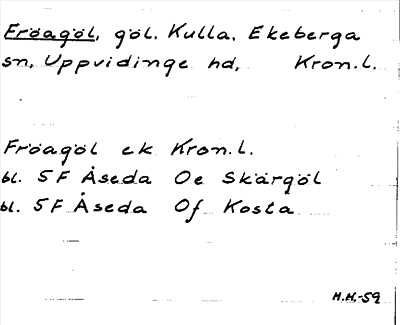 Fröagöl, göl. Kulla. Ekeberga
sn, Uppvidinge hd, Kron.l.
Fröagöl ek Kron.l.
bl. 5F Åseda Oe Skärgöl
bl. 5F Åseda Of Kosta
H.H.-59